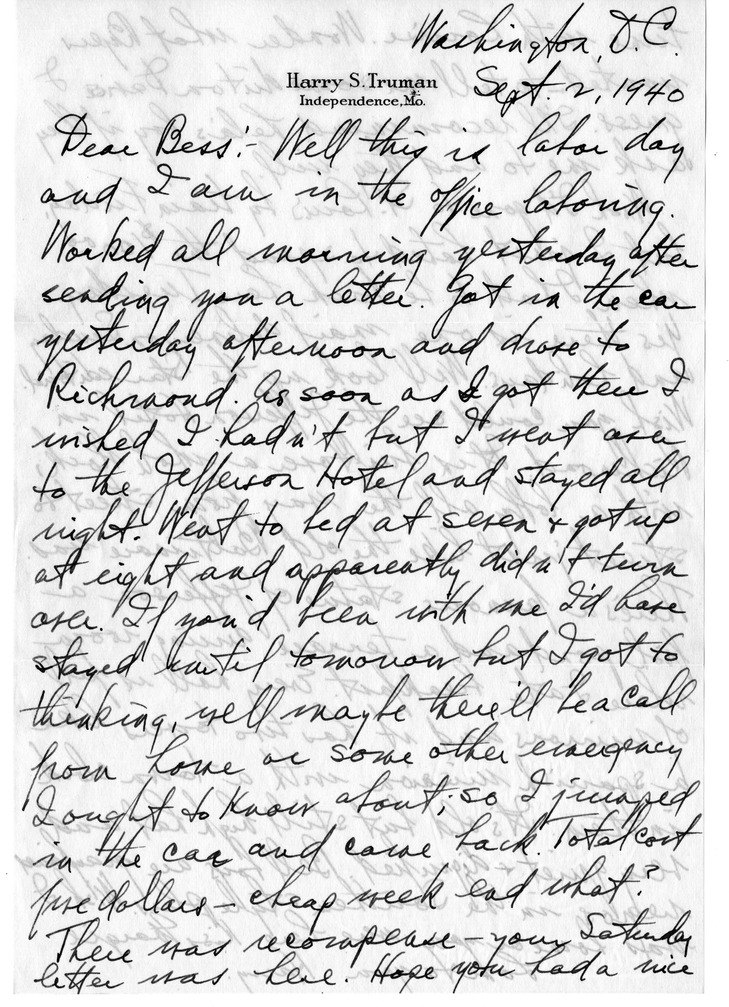 Washington, D.C.
Harry S. Truman
Independence, Mo.
Sept. 2, 1940
Dear Bess:- Well this is labor day
and I am in the office laboring.
Worked all morning yesterday after
sending you a letter. Got in the car
yesterday afternoon and drove to
Richmond. As soon as I got there I
wished I hadn't but I went over
to the Jefferson Hotel and stayed all
night. Went to bed at seven & got up
at eight and apparently didn't turn
over. If you'd been with me I'd have
stayed until tomorrow but I got to
thinking, well maybe there'll be a call
from home or some other emergency
I ought to know about; so I jumped
in the car and came back. Total cost
five dollars - cheap week end what?
There was recompense - your Saturday
letter was here. Hope you had a nice